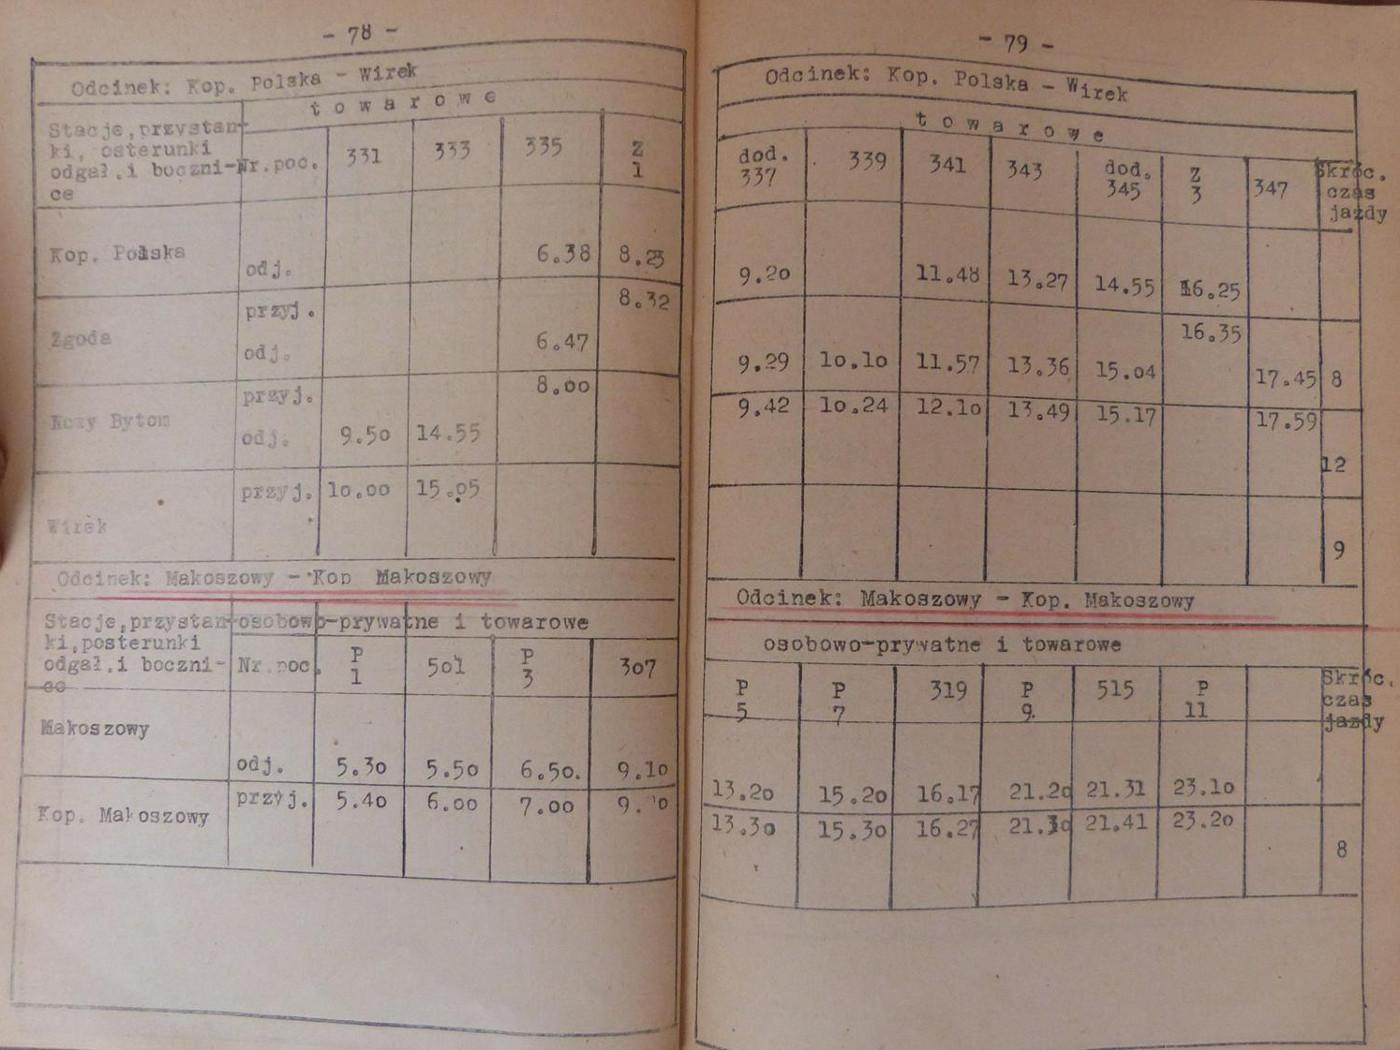 - 78 -
Odcinek: Kop. Polska - Wirek
t o w a r o w e
Stacje,przystan-
ki, osterunki
odgał.i boczni-
ce
Nr.poc. 331 333 335 Z 1
Kop. Polska odj. 6.38 8.23
przyj. 8.32
Zgoda odj. 6.47
przyj. 8.00
Nowy Bytom odj. 9.50 14.55
przyj. 10.00 15.05
Wirek
Odcinek: Makoszowy - Kop Makoszowy
Stacje,przystan-
ki,posterunki
odgał.i boczni-
ce
osobowo-prywatne i towarowe
Nr.poc. P 1 501 P 3 307
Makoszowy
odj. 5.30 5.50 6.50. 9.10
Kop. Makoszowy przyj. 5.40 6.00 7.00
- 79 -
Odcinek: Kop. Polska - Wirek
t o w a r o w e
dod. 337 339 341 343 dod. 345 Z 3 347 Skróc. czas jazdy
9.20 11.48 13.27 14.55 16.25
16.35
9.29 10.10 11.57 13.36 15.04 17.45 8
9.42 10.24 12.10 13.49 15.17 17.59
12
9
Odcinek: Makoszowy - Kop. Makoszowy
osobowo-prywatne i towarowe
P 5 P 7 319 P 9. 515 P 11 Skróc. czas jazdy
13.20 15.20 16.17 21.20 21.31 23.10
13.30 15.30 16.27 21.30 21.41 23.20
8